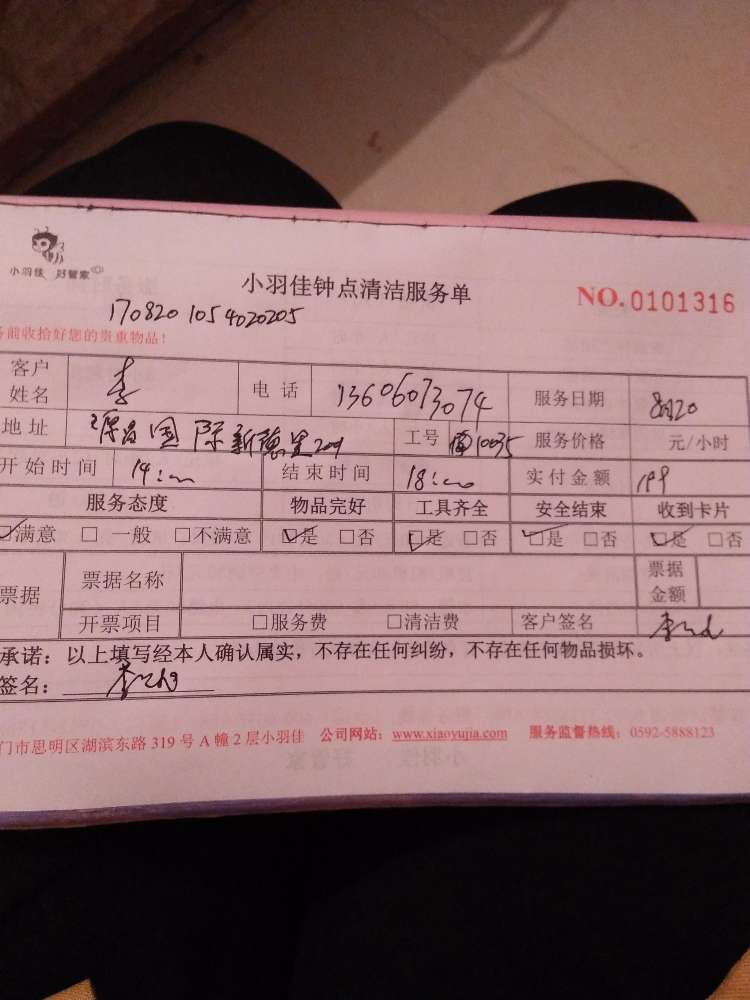 小羽佳 好管家
小羽佳钟点清洁服务单
NO.0101316
170820 1054020205
务前收拾好您的贵重物品！
客户姓名 李 电话 13606073074 服务日期 8月20
地址 国际新 工号 10035 服务价格 元/小时
开始时间 14:00 结束时间 18:00 实付金额
服务态度 物品完好 工具齐全 安全结束 收到卡片
☑满意 □一般 □不满意 ☑是 □否 ☑是 □否 ☑是 □否 ☑是 □否
票据 票据名称 票据金额
开票项目 □服务费 □清洁费 客户签名 李
承诺：以上填写经本人确认属实，不存在任何纠纷，不存在任何物品损坏。
签名： 李
门市思明区湖滨东路 319 号 A 幢 2 层小羽佳 公司网站：www.xiaoyujia.com 服务监督热线：0592-5888123